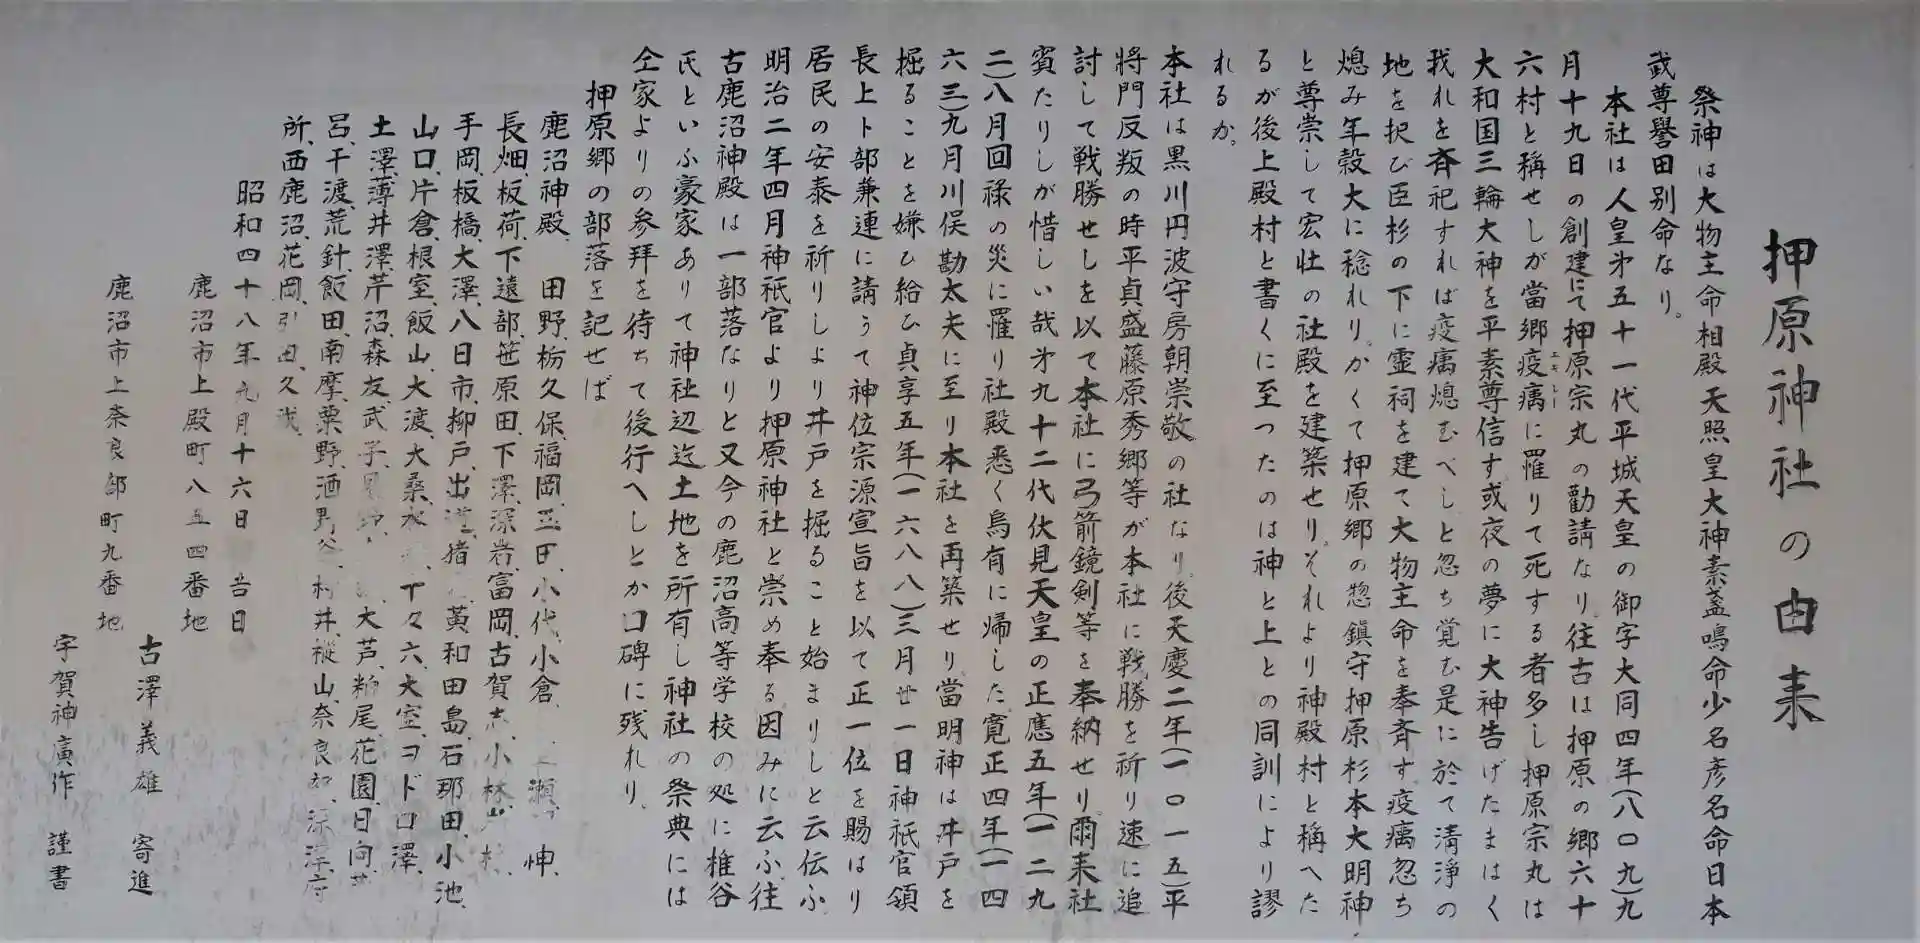 押原神社の由来
祭神は大物主命相殿天照皇大神素盞鳴命少名彦名命日本
武尊譽田別命なり。
本社は人皇㐧五十一代平城天皇の御字大同四年(八〇九)九
月十九日の創建にて押原宗丸の勸請なり往古は押原の郷六十
六村と稱せしが當郷疫癘に罹りて死する者多し押原宗丸は
大和国三輪大神を平素尊信す或夜の夢に大神告げたまはく
我れを斉祀すれば疫癘熄むべしと忽ち覚む是に於て清淨の
地を択び臣杉の下に霊祠を建て大物主命を奉斉す疫癘忽ち
熄み年穀大に稔れり。かくて押原郷の惣鎭守押原杉本大明神
と尊崇して宏壮の社殿を建築せり。それより神殿村と稱へた
るが後上殿村と書くに至つたのは神と上との同訓により謬
れるか。
本社は黒川円波守房朝崇敬の社なり。後天慶二年(一〇一五)平
将門反叛の時平貞盛藤原秀郷等が本社に戦勝を祈り速に追
討して戦勝せしを以て本社に弓箭鏡剣等を奉納せり爾来社
賓たりしが惜しい哉㐧九十二代伏見天皇の正應五年(一二九
二)八月回祿の災に罹り社殿悉く烏有に帰した寛正四年(一四
六三)九月川俣勘太夫に至り本社を再築せり當明神は井戸を
掘ることを嫌ひ給ひ貞享五年(一六八八)三月廿一日神祇官領
長上卜部兼連に請うて神位宗源宣旨を以て正一位を賜はり
居民の安泰を祈りしより井戸を掘ること始まりしと云伝ふ
明治二年四月神祇官より押原神社と崇め奉る因みに云ふ往
古鹿沼神殿は一部落なりと又今の鹿沼高等学校の処に椎谷
氏といふ豪家ありて神社辺迄土地を所有し神社の祭典には
仝家よりの参拝を待ちて後行へしとか口碑に残れり。
押原郷の部落を記せば
鹿沼神殿、田野、栃久保、福岡、玉田、小代、小倉、瀬
長畑、板荷、下遠部、笹原田、下澤、深岩、富岡、古賀志、小林
手岡、板橋、大澤、八日市、柳戸、出 猪 黄和田島、石那田、小池、
山口、片倉、根室、飯山、大渡、大桑、 六、大室、ヨド口澤、
土澤、薄井澤、芹沼、森友、武子、 大芦、粕尾、花園、日向、
呂、千渡、荒針、飯田、南摩、粟野、酒野谷、村井、樅山、奈良部、
所、西鹿沼、花岡、引田、久我、
昭和四十八年九月十六日 吉日
鹿沼市上殿町八五四番地
古澤義雄 寄進
鹿沼市上奈良部町九番地
宇賀神廣作 謹書